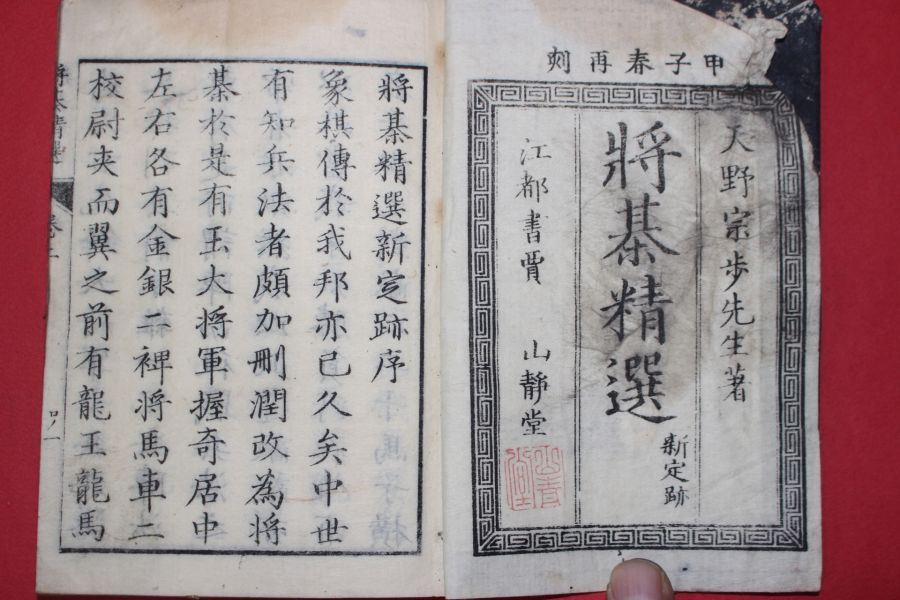 甲子春再刻
天野宗歩先生著
將棊精選
新定跡
江都書賈 山靜堂
將棊精選新定跡序
象棋傳於我邦亦已久矣中世
有知兵法者頗加刪潤改為將
棊於是有玉大將軍握奇居中
左右各有金銀二裨將馬車二
校尉夾而翼之前有龍王龍馬